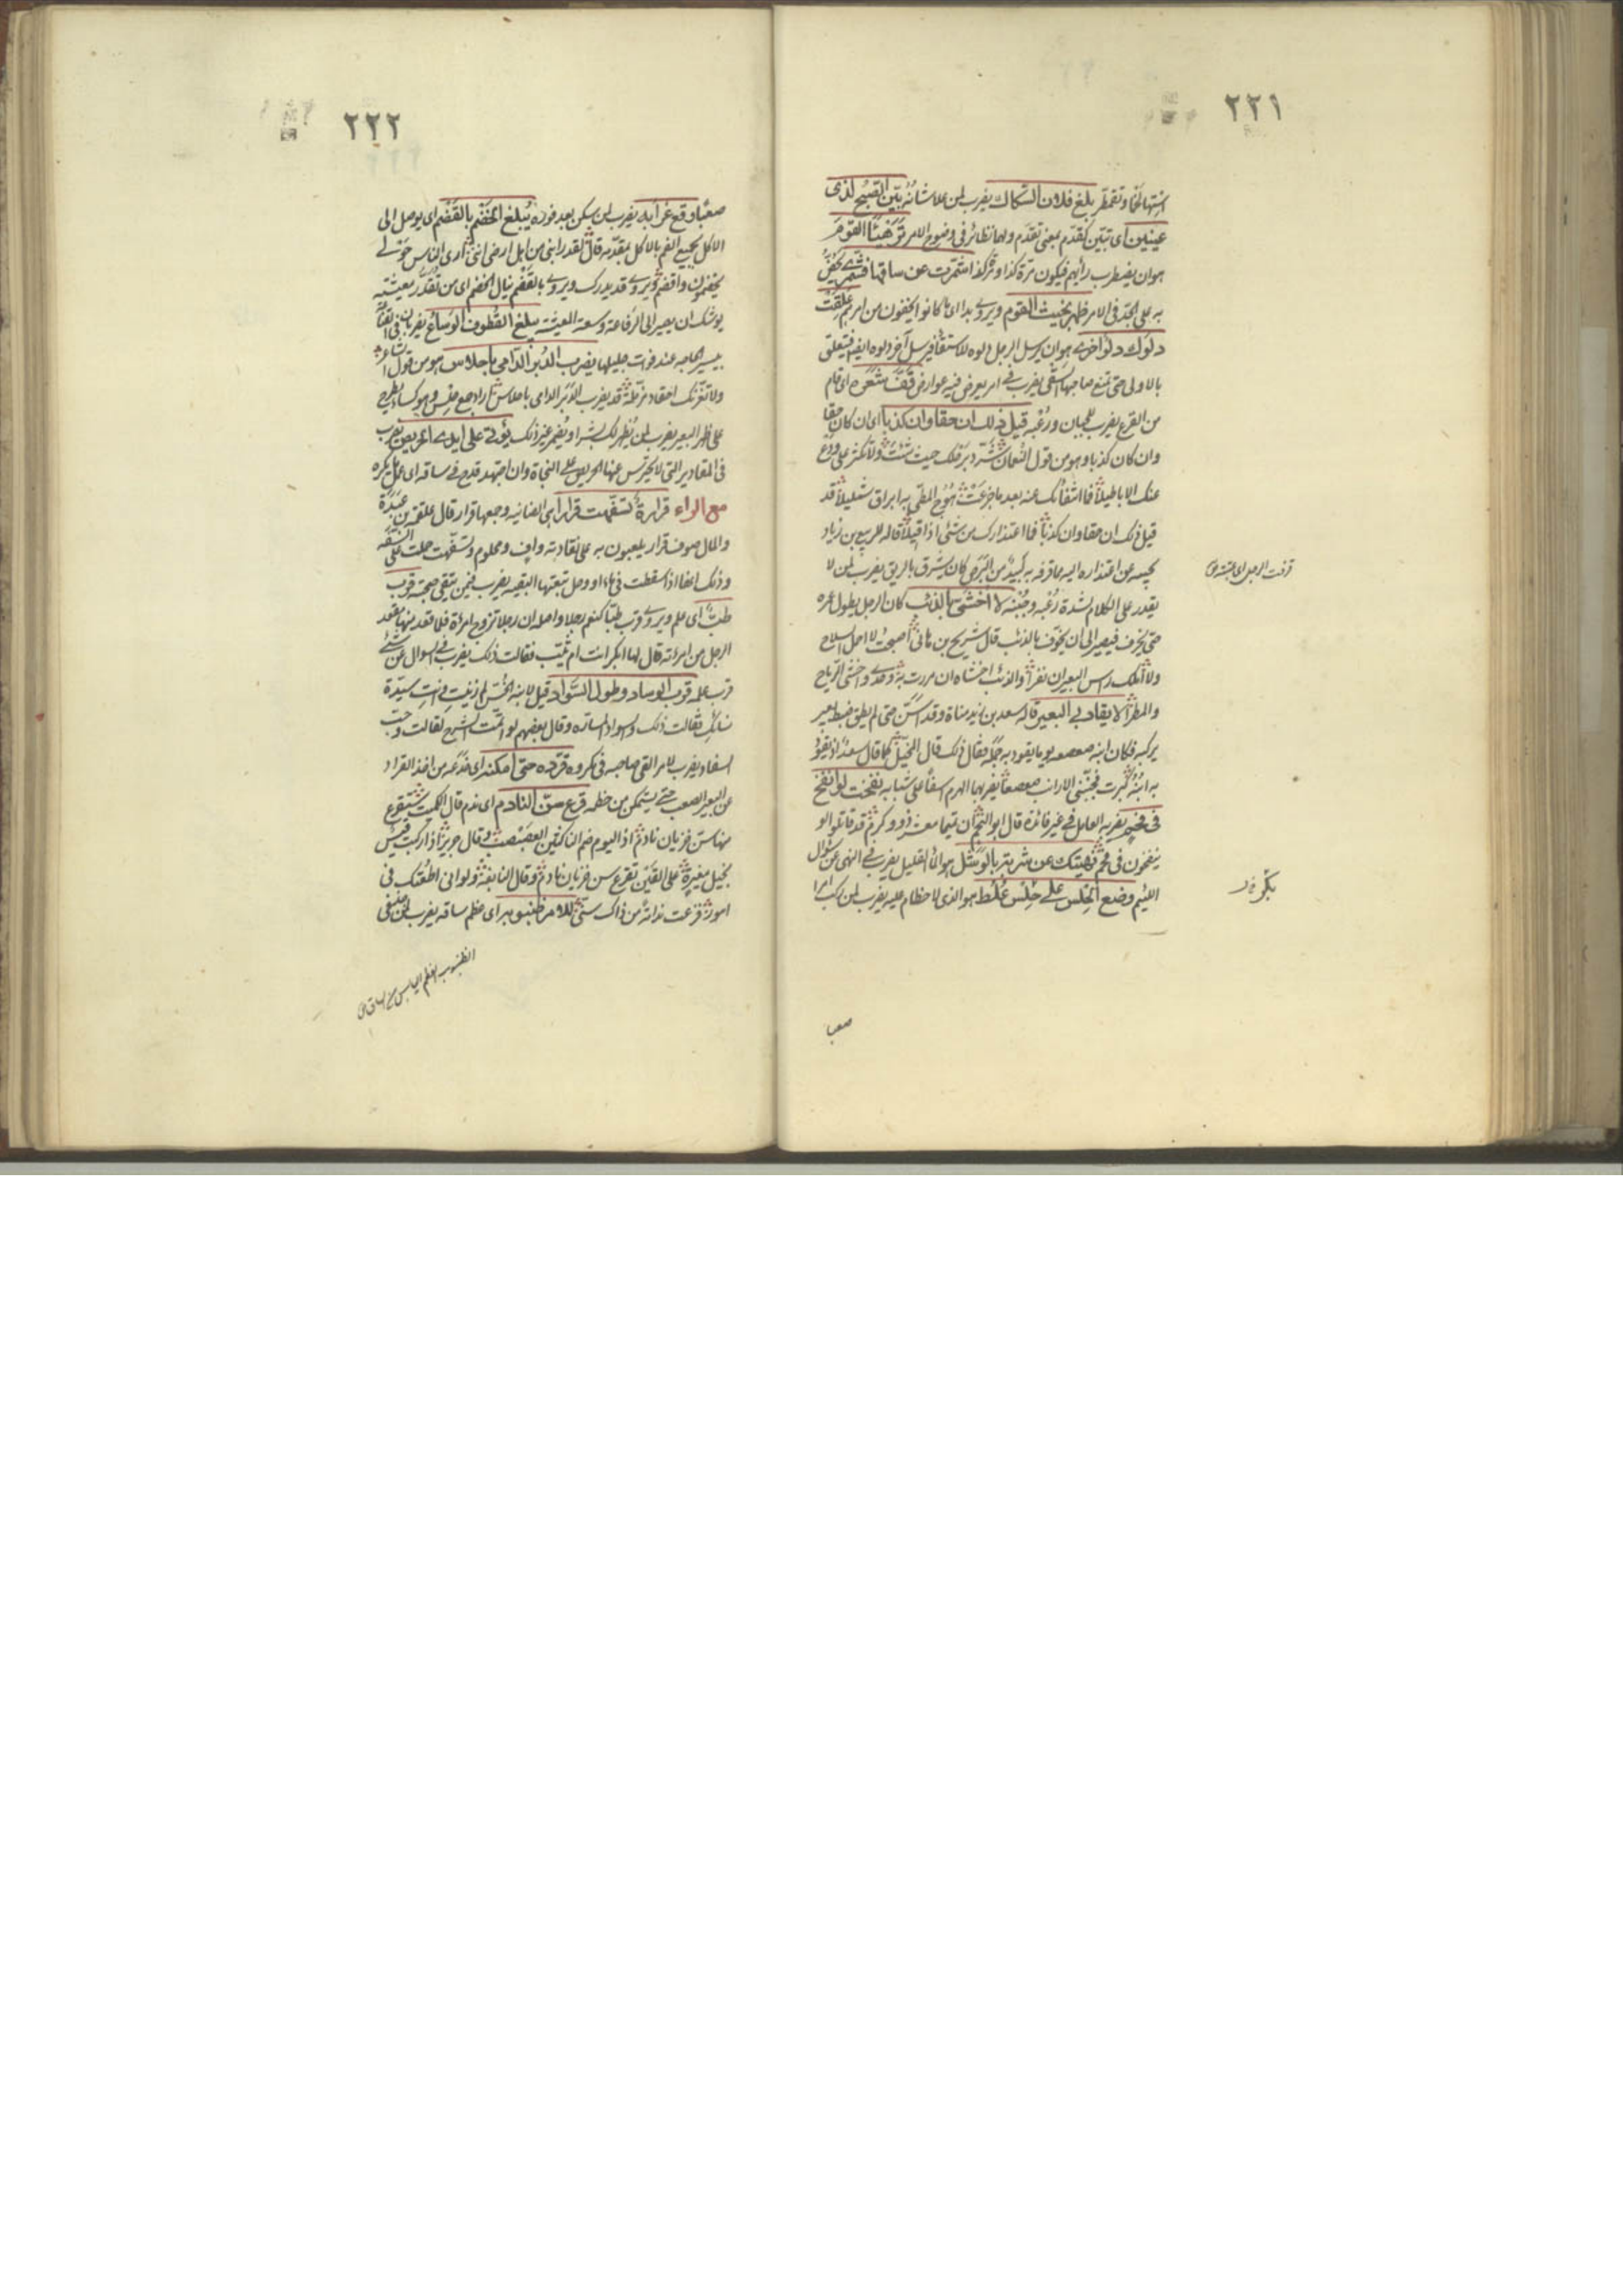 ٢٢١
استها لخا وتقمطر بلغ فلان السكاك يضرب لمن علا شانه بين الصبح لذى
عينين اى تبين كقدم بمعنى تقدم ولها نظائر فى وضوح الامر ترهيأ القوم
هو ان يضطرب رأيهم فيكون مرة كذا ومرة كذا شمرت عن ساقها فشمرى يحض
به على الجد فى الامر ظهر نجيث القوم ويروى بدا اى ما كانوا يخفون من امرهم علقت
دلوك دلو اخرى هو ان يرسل الرجل دلوه للاستقاء فيرسل آخر دلوه ايضا فيتعلق
بالاولى حتى تمنع صاحبها السقى يضرب فى امر يعرض فيه عوارض قف شعره اى قام
من الفزع يضرب للجبان ورعبه قيل ذلك ان حقا وان كذبا اى ان كان حقا
وان كان كذبا وهو من قول النعمان شرد برحلك حيث شئت ولا تكثر على ودع
عنك الاباطيلا فما انتفاؤك عنه بعد ما جزعت هوج المطى به ابراق شمليلا قد
قيل ذلك ان حقا وان كذبا فما اعتذارك من شئ اذا قيلا قاله للربيع بن زياد
يجيبه عن اعتذاره اليه مما قرفه به لبيد من البرص كان يشرق بالريق يضرب لمن لا
يقدر على الكلام لشدة رعبه وجبنه لا اخشى بالذئب كان الرجل يطول عمره
حتى يخرف فيصير الى ان يخوف بالذئب قال شريح بن هانئ اصبحت لا احمل السلاح
ولا املك راس البعير ان نفرا والذئب اخشاه ان مررت به وحدى واخشى الرياح
والمطرا لا يقاد بى البعير قاله سعد بن زيد مناة وقد اسن حتى لم يطق ضبط بعير
يركبه فكان ابنه صعصعه يوما يقود به جمله فقال ذلك قال المخبل كما قال سعد اذ يقود
به ابنه كبرت فجنبنى الارانب صعصعا يضربها الهرم اسفا على شبابه نفخت لو انفخ
فى فحم يضربه العامل فى غير فائدة قال ابو النجم ان تيما معشر ذوو كرم قد قاتلوا لو
ينفخون فى فحم نهيتك عن شرب بالوشل هو الماء القليل يضرب فى النهى عن سؤال
اللئيم وضع الحلس على حلس غلط هو الذى لا خطام عليه يضرب لمن ركب امرا
قرفت الرجل اى عبته ص
صعبا
٢٢٢
صعبا وقع غرابه يضرب لمن سكن بعد فوره يبلغ الخضم بالقضم اى يوصل الى
الاكل بجميع الفم بالاكل بمقدمه قال لقد رابنى من اهل ارضى اننى ارى الناس حولى
يخضمون واقضم ويروى قد يدرك ويروى بالقضم ينال الخضم اى من تقدر معيشته
يوشك ان يصير الى الرفاعة وسعة المعيشة يبلغ القطوف الوساع يضربان فى القناعة
بيسير الحاجه عند فوات جليلها يضرب الدبر الدامى باحلاس هو من قول الشاعر
ولا تغرنك احقاد مزملة قد يضرب الدبر الدامى باحلاس اراد جمع حلس وهو كساء يطرح
على ظهر البعير يضرب لمن يظهر لك بشرا ويضمر غير ذلك يؤتى على ايدى الحريص يضرب
فى المقادير التى لا يحترس عنها الحريص على النجاة وان اجتهد قدح فى ساقه اى عمل يكره
مع الراء قرارة تسفهت قرارا هى الضانيه وجمعها قرار قال علقمة بن عبدة
والمال صوف قرار يلعبون به على نقادته واف ومجلوم وتسفهت حملت على السفه
وذلك انها اذا سقطت فى ماء او وحل تبعتها البقيه يضرب فيمن يتقى صحبته قرب
طب اى علم ويروى قرب طبا كنعم رجلا واصله ان رجلا تزوج امرأة فلما قعد منها مقعد
الرجل من امرأته قال لها ابكر انت ام ثيب فقالت ذلك يضرب فى السوال عن شئ
قرب علمه قرب الوساد وطول السواد قيل لابنة الخس لم زنيت وانت سيدة
نسائك فقالت ذلك والسواد المسارة وقال بعضهم لو اتمت الشرح لقالت وحب
السفاد يضرب للامر القى صاحبه فى مكروه قرده حتى امكنه اى خدعه من اخذ القراد
عن البعير الصعب حتى يتمكن من خطمه قرع سن النادم اى ندم قال الكميت ستقرع
منها سن خزيان نادم اذا اليوم ضم الناكثين العصبصب وقال جرير اذا ركبت قيس
بخيل مغيرة على القين تقرع سن خزيان نادم وقال النابغة ولو انى اطعتك فى
امور قرعت ندامة من ذاك سنى للامر ظنبوبه اى عظم ساقه يضرب لمن
الظنبوب العظم اليابس من الساق ص